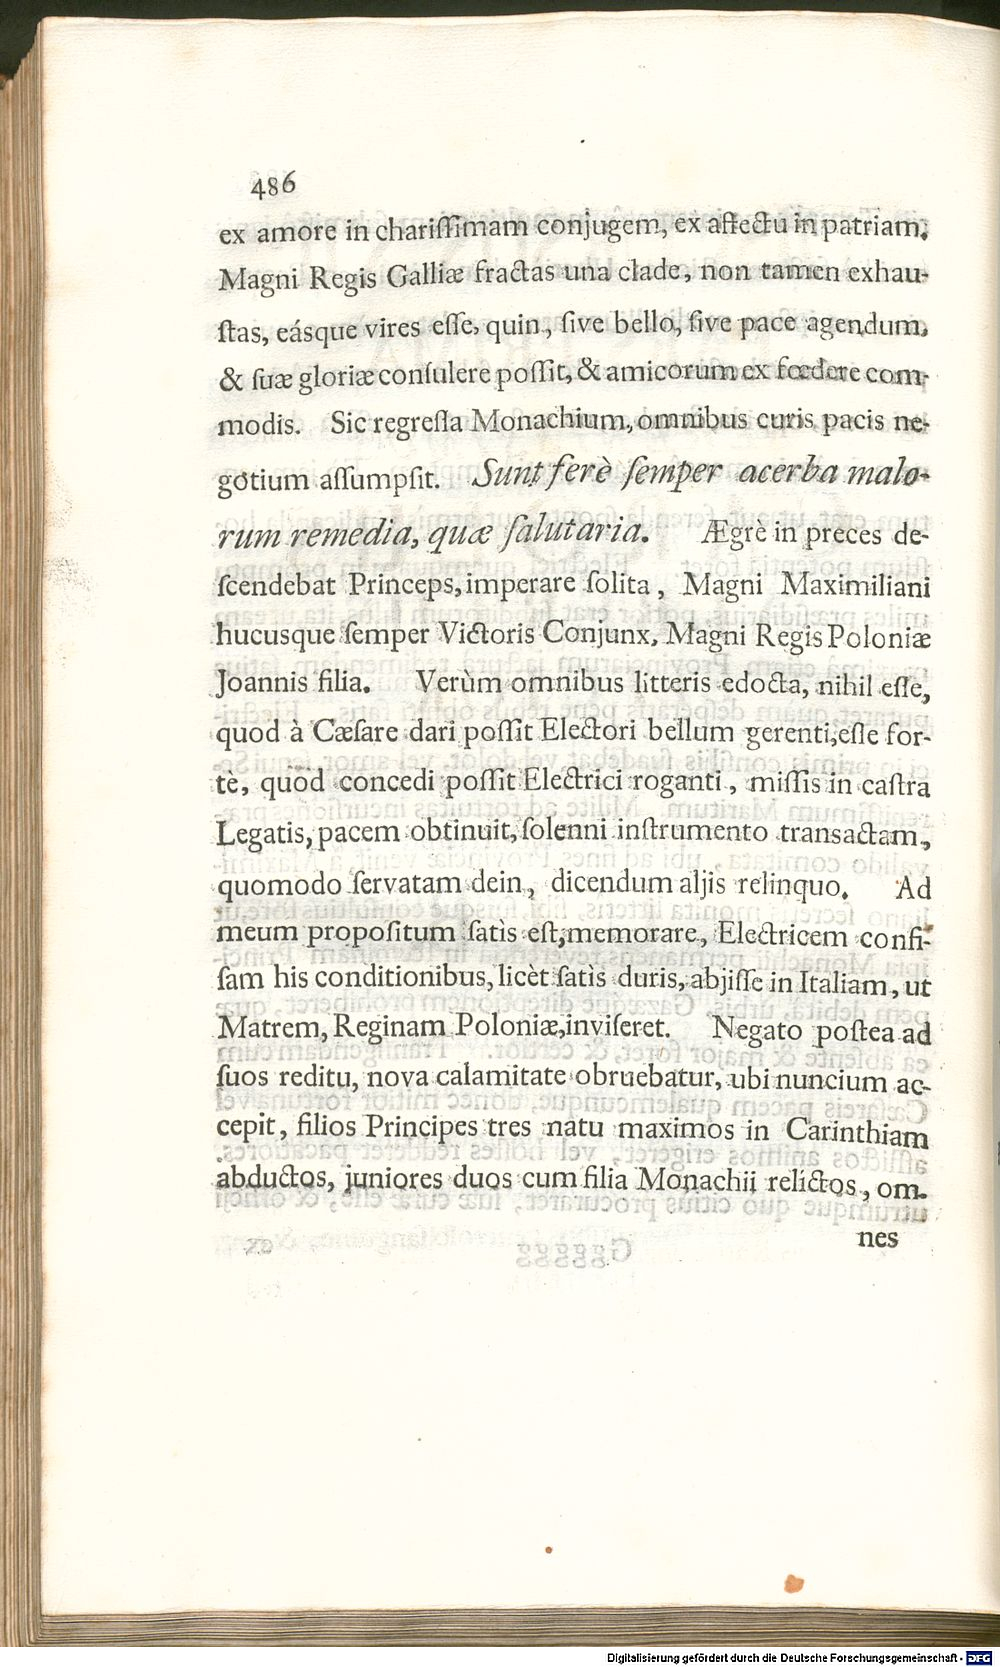 486
ex amore in chariſſimam conjugem, ex affectu in patriam,
Magni Regis Galliæ fractas una clade, non tamen exhau-
ſtas, eásque vires eſſe, quin, ſive bello, ſive pace agendum,
& ſuæ gloriæ conſulere poſſit, & amicorum ex fœdere com-
modis. Sic regreſſa Monachium, omnibus curis pacis ne-
gotium aſſumpſit. Sunt ferè ſemper acerba malo-
rum remedia, quæ ſalutaria. Ægrè in preces de-
ſcendebat Princeps, imperare ſolita, Magni Maximiliani
hucusque ſemper Victoris Conjunx, Magni Regis Poloniæ
Joannis filia. Verùm omnibus litteris edocta, nihil eſſe,
quod à Cæſare dari poſſit Electori bellum gerenti, eſſe for-
tè, quod concedi poſſit Electrici roganti, miſſis in caſtra
Legatis, pacem obtinuit, ſolenni inſtrumento transactam,
quomodo ſervatam dein, dicendum aljis relinquo. Ad
meum propoſitum ſatìs eſt, memorare, Electricem confi-
ſam his conditionibus, licèt ſatìs duris, abjiſſe in Italiam, ut
Matrem, Reginam Poloniæ, inviſeret. Negato poſtea ad
ſuos reditu, nova calamitate obruebatur, ubi nuncium ac-
cepit, filios Principes tres natu maximos in Carinthiam
abductos, juniores duos cum filia Monachij relictos, om-
nes
Digitalisierung gefördert durch die Deutsche Forschungsgemeinschaft - DFG